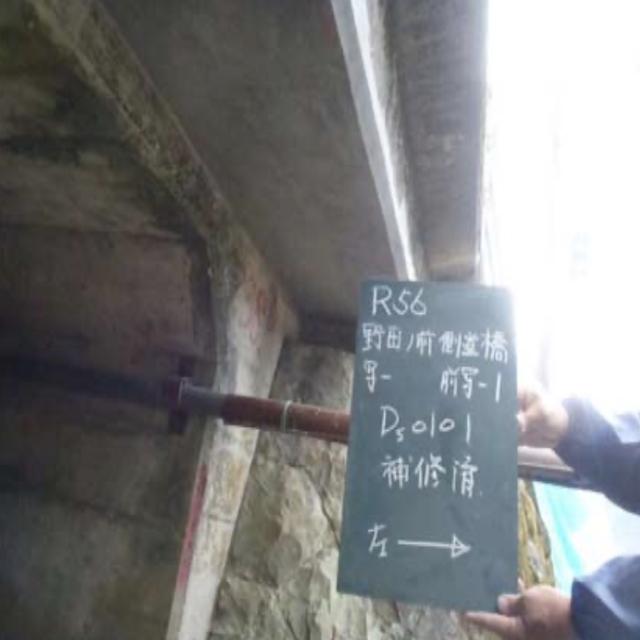 R56
野田ノ前側道橋
写- 前写-1
Ds0101
補修済
左→